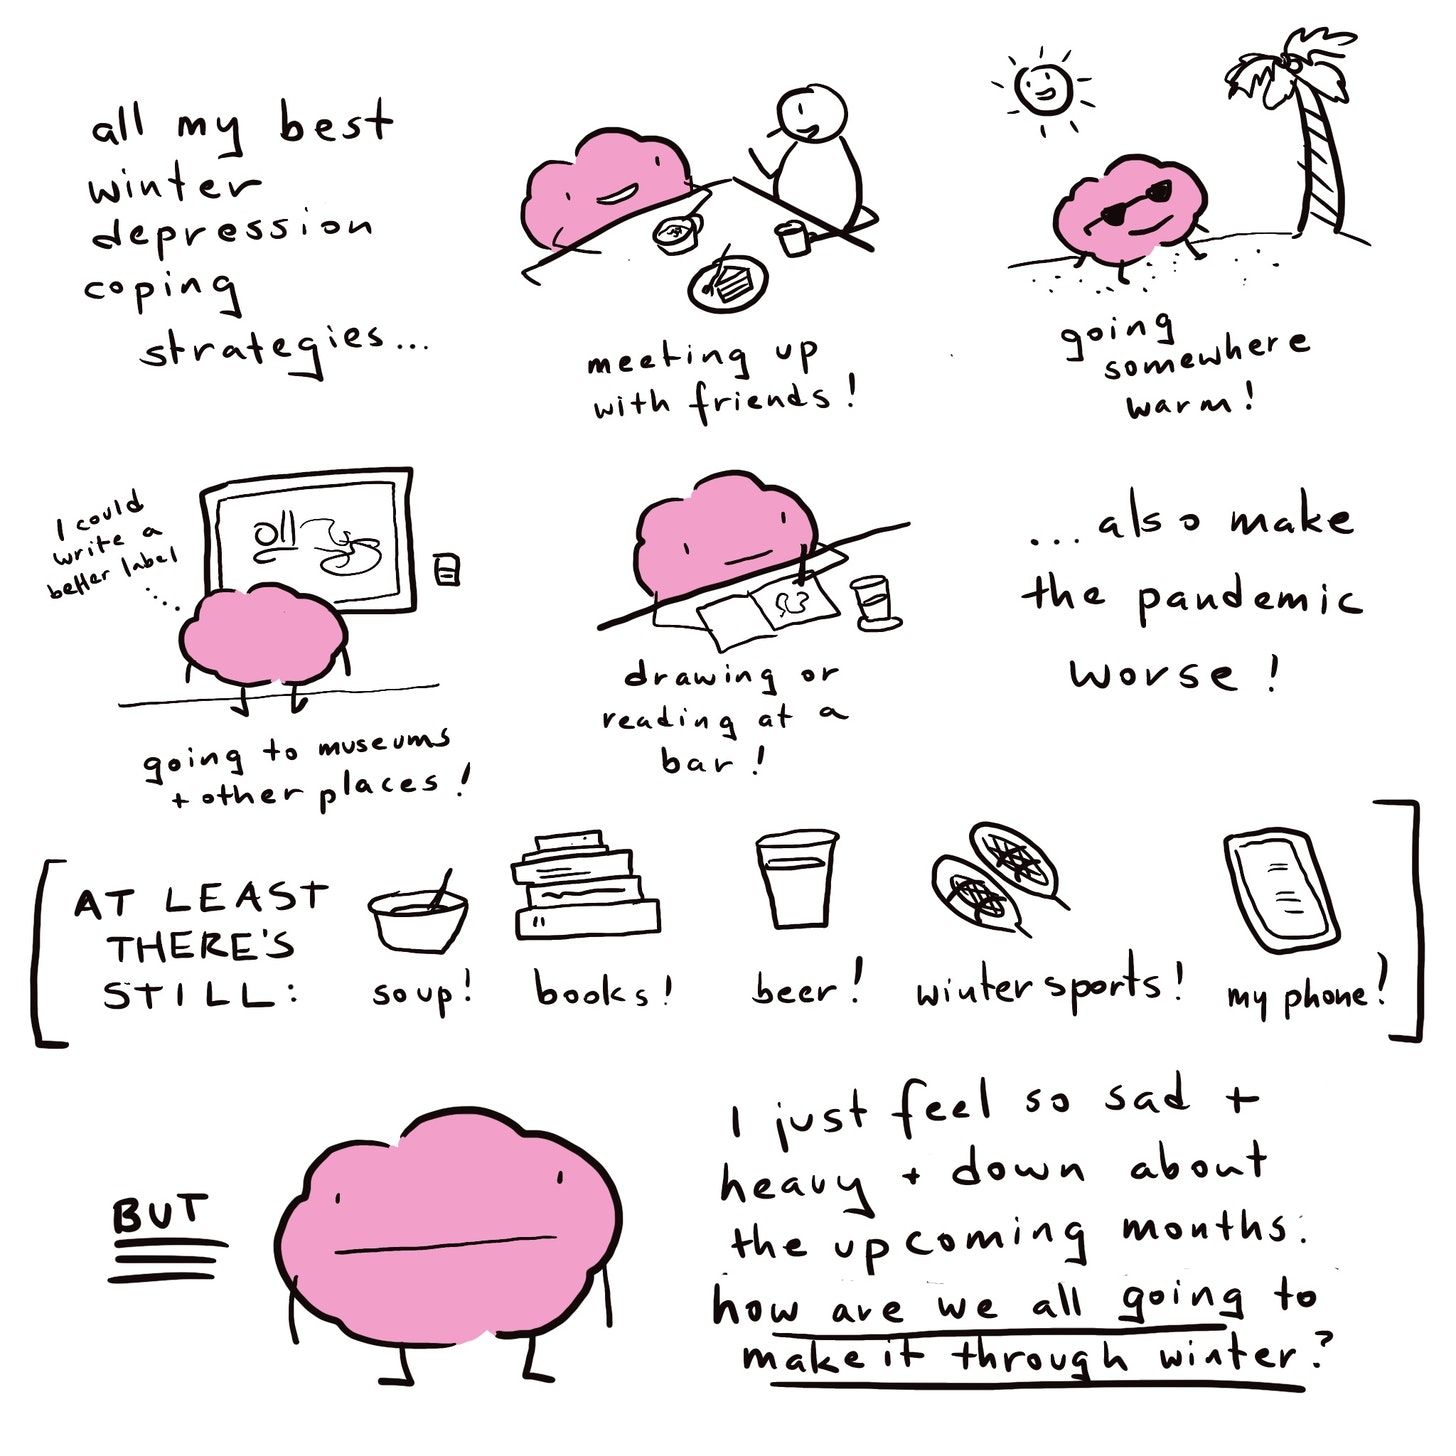 all my best
winter
depression
coping
strategies...
meeting up
with friends!
going
somewhere
warm!
I could
write a
better label
going to museums
+ other places!
drawing or
reading at a
bar!
...also make
the pandemic
worse!
AT LEAST
THERE'S
STILL:
soup!
books!
beer!
winter sports!
my phone!
BUT
I just feel so sad +
heavy + down about
the upcoming months.
how are we all going to
make it through winter?